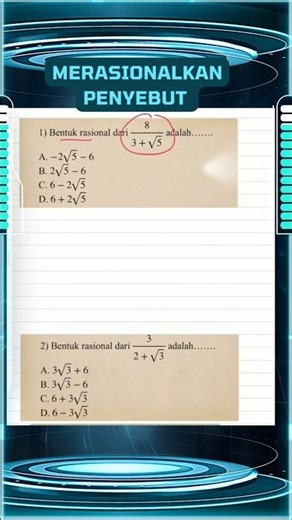 MERASIONALKAN
PENYEBUT
1) Bentuk rasional dari 8/(3 + √5) adalah.......
A. −2√5 − 6
B. 2√5 − 6
C. 6 − 2√5
D. 6 + 2√5
2) Bentuk rasional dari 3/(2 + √3) adalah.......
A. 3√3 + 6
B. 3√3 − 6
C. 6 + 3√3
D. 6 − 3√3